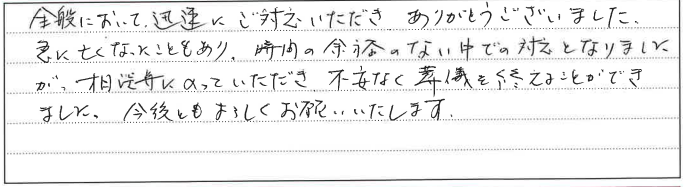 全般において、迅速にご対応いただき ありがとうございました、
急に亡くなったこともあり、時間の余裕のない中での対応となりました
が、相談等にのっていただき 不安なく葬儀を終えることができ
ました。今後ともよろしくお願いいたします.